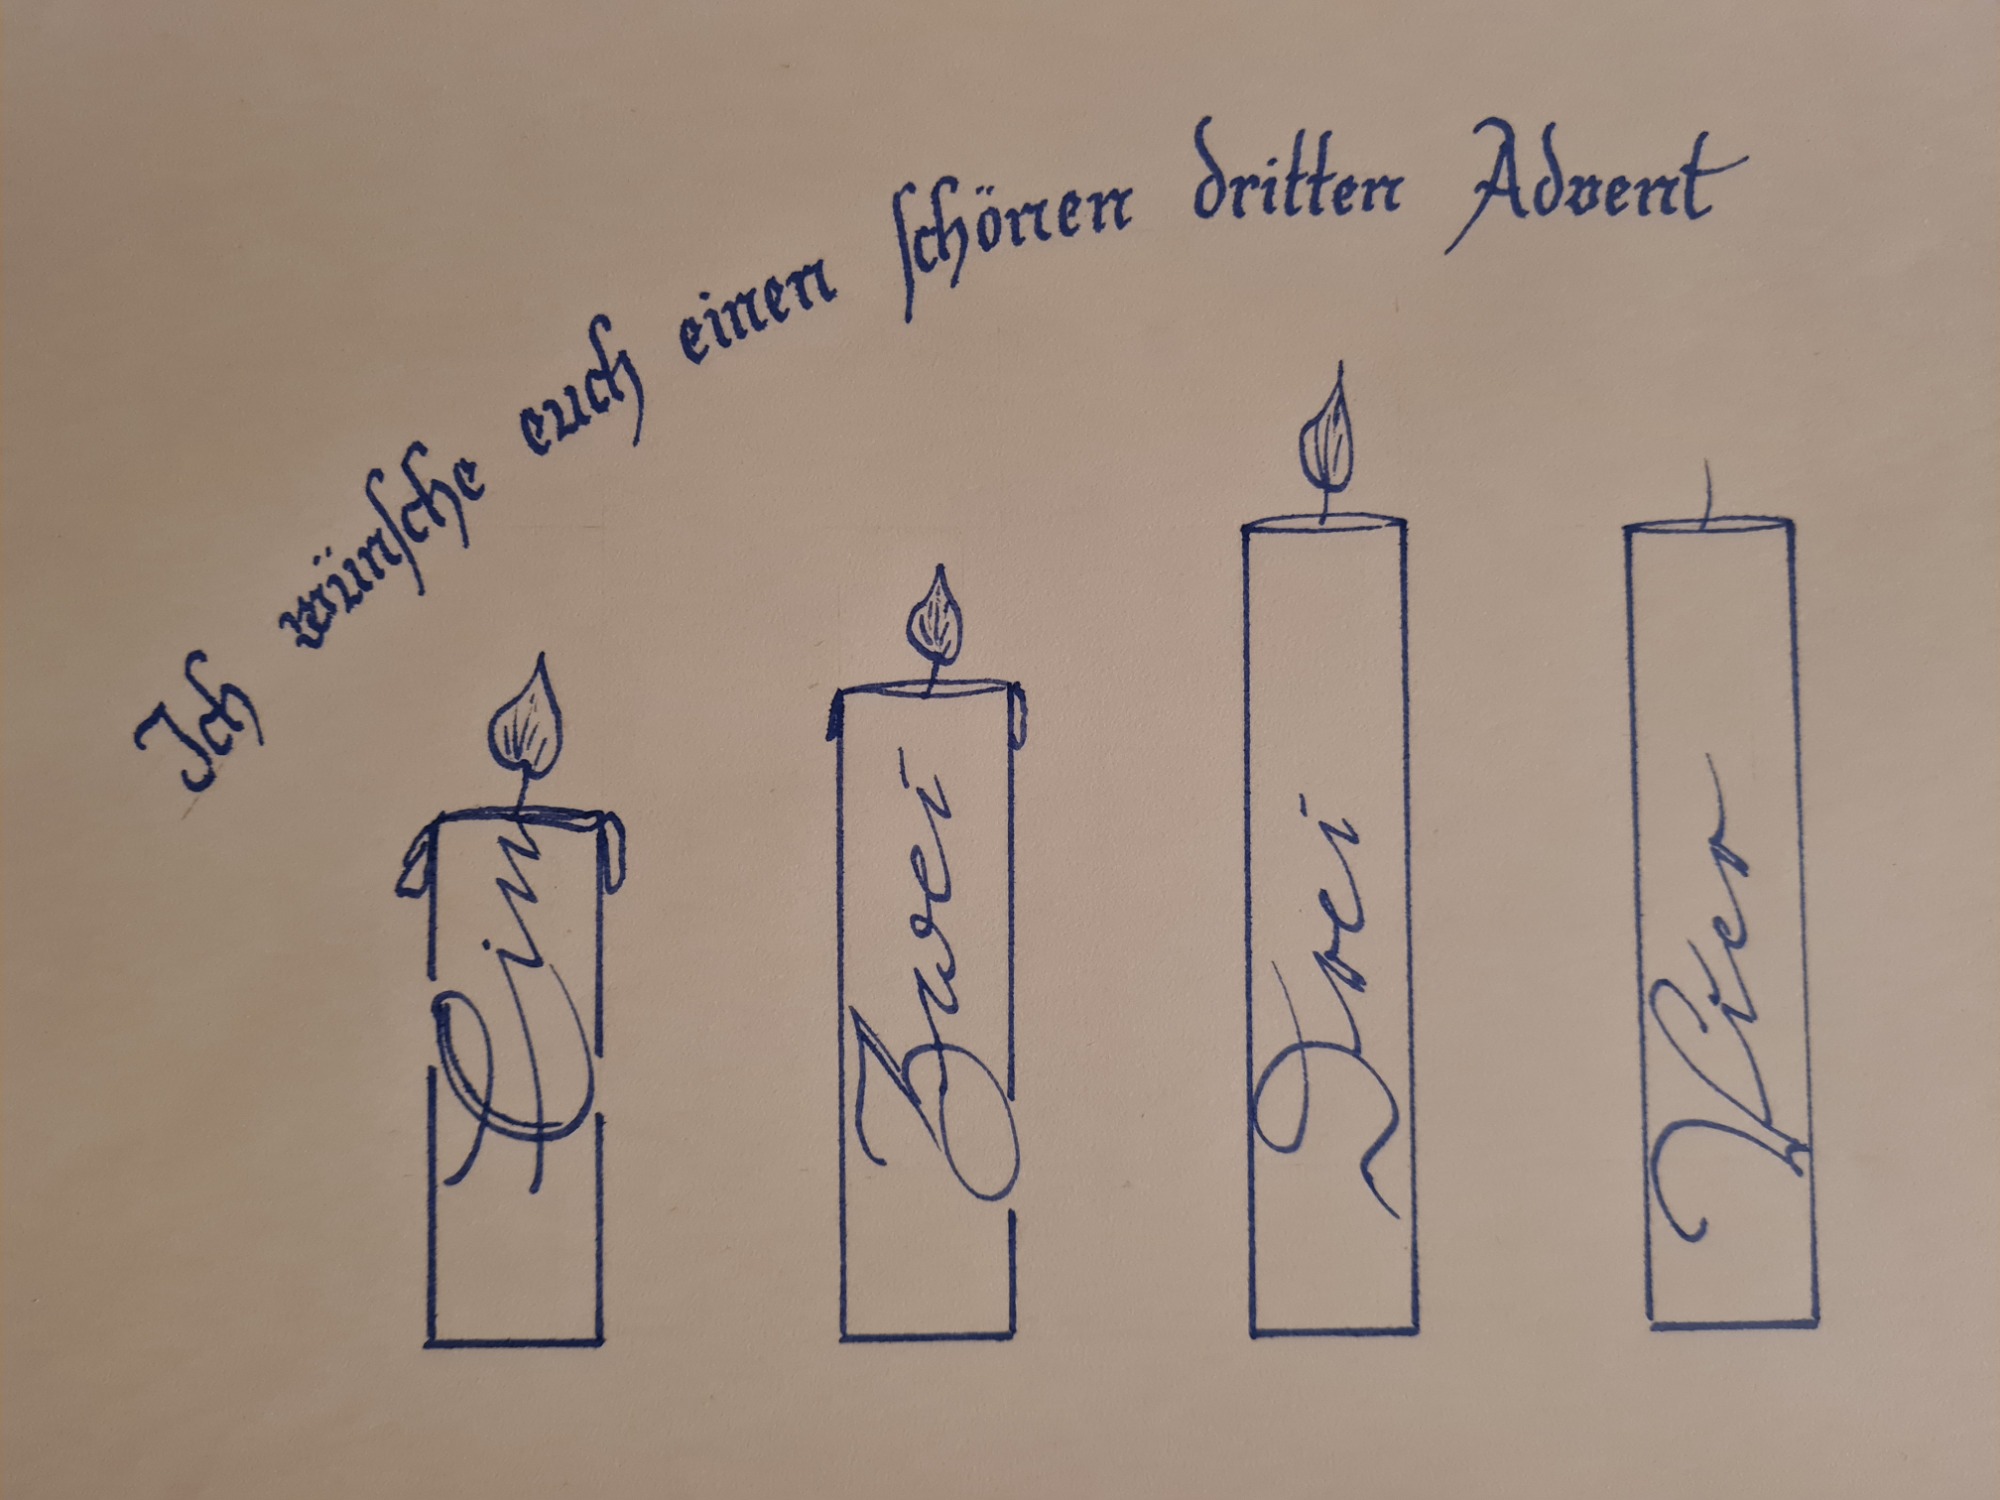 Ich wünſche euch einen ſchönen dritten Advent
Ein
Zwei
Drei
Vier